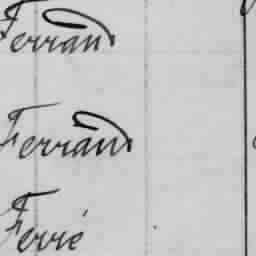 Ferrand
Ferrand
Ferré